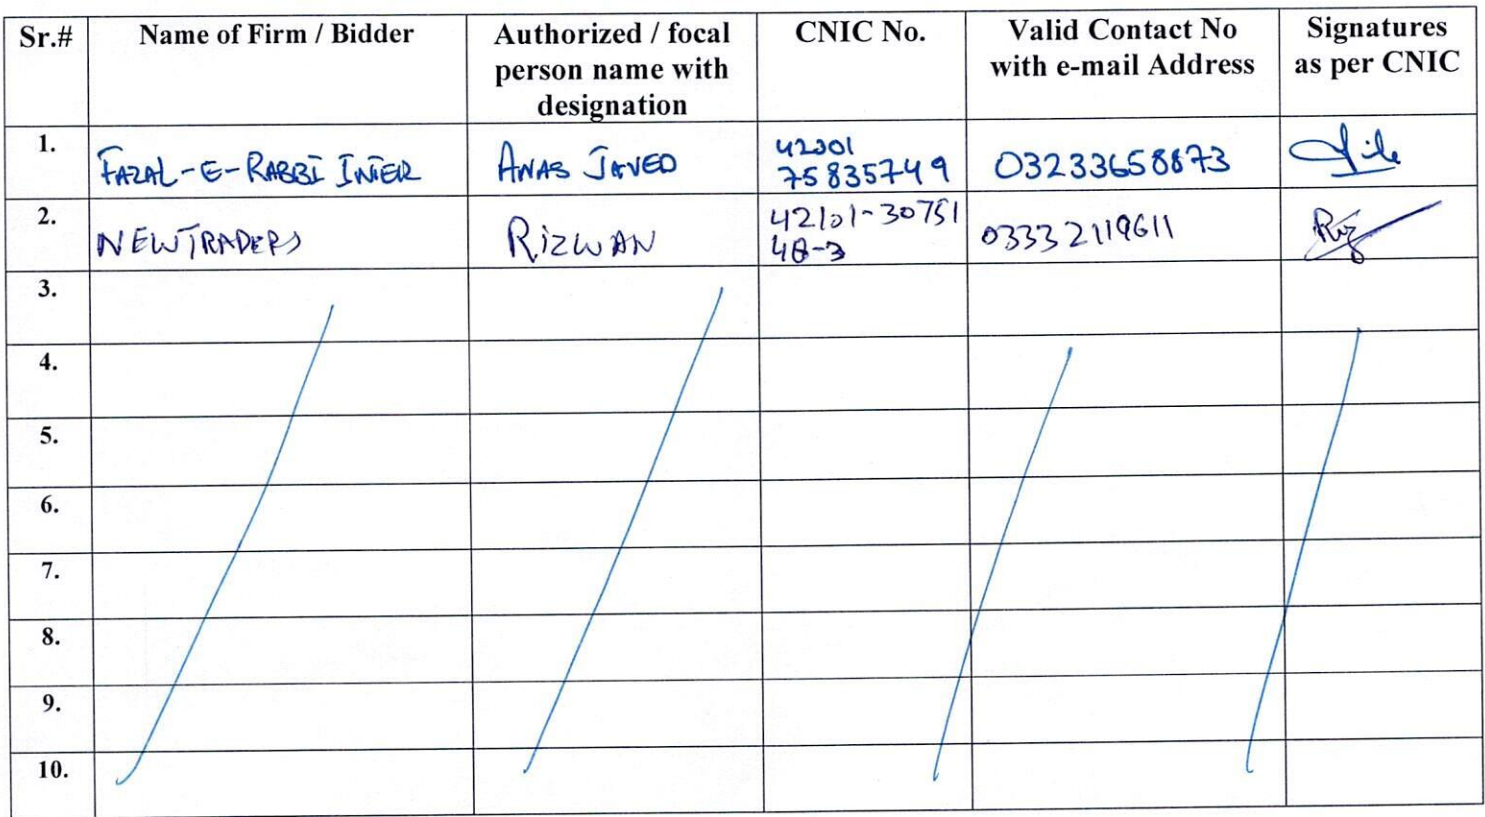 Sr.# Name of Firm / Bidder Authorized / focal person name with designation CNIC No. Valid Contact No with e-mail Address Signatures as per CNIC
1. FAZAL-E-RABBI INTER ANAS JAVED 42301 75835749 03233658873
2. NEWTRADERS RIZWAN 42101-30751 48-3 03332119611 Riz
3.
4.
5.
6.
7.
8.
9.
10.